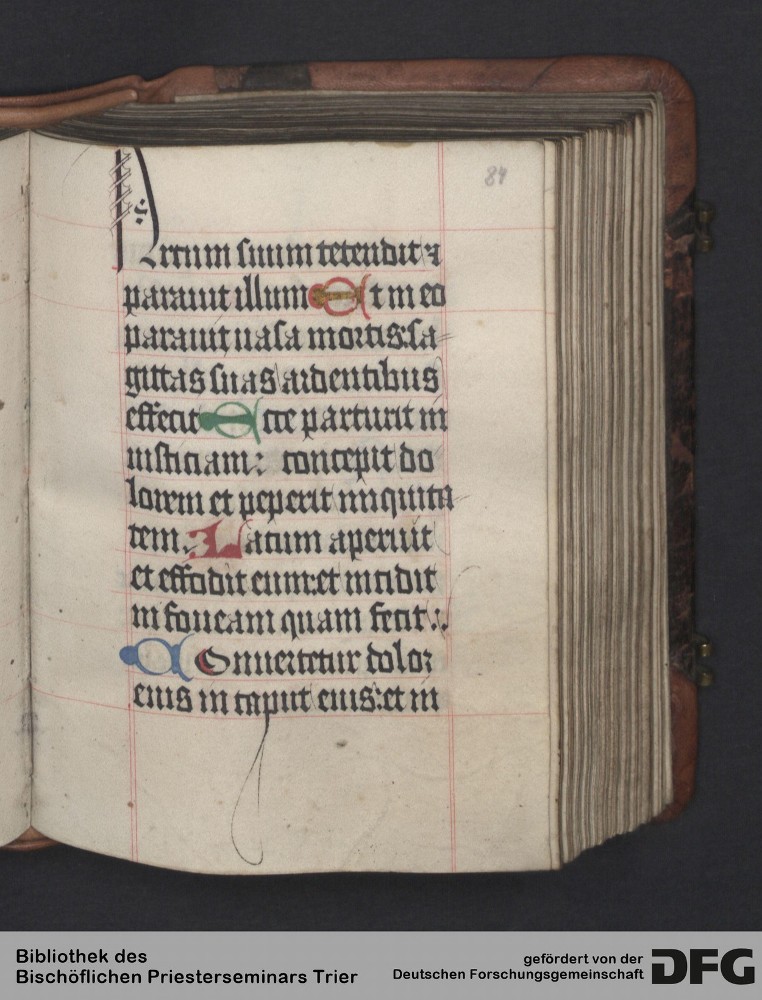 84
Arcum suum tetendit ⁊
parauit illum Et in eo
parauit uasa mortis: sa-
gittas suas ardentibus
effecit Ecce parturit in
iusticiam: concepit do
lorem et peperit iniquita
tem. Lacum aperuit
et effodit eum: et incidit
in foueam quam fecit.
Conuertetur dolor
eius in caput eius: et in
Bibliothek des
Bischöflichen Priesterseminars Trier
gefördert von der
Deutschen Forschungsgemeinschaft
DFG